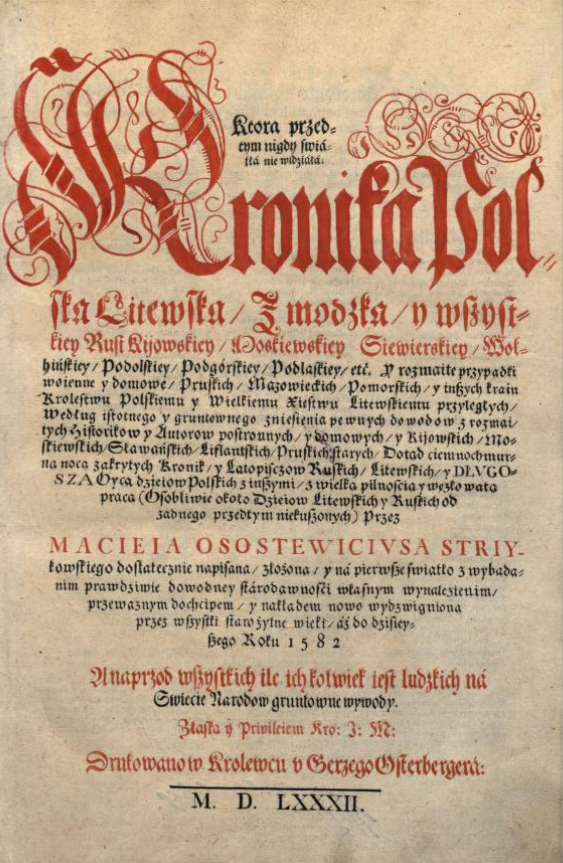 Ktora przed⸗
tym nigdy świá⸗
tłá nie widziáłá.
Kronika Pol⸗
ska Litewska / Zmodzka / y wszyst⸗
kiey Rusi Kijowskiey / Moskiewskiey Siewierskiey / Wol⸗
hińskiey / Podolskiey / Podgorskiey / Podlaskiey / etć. Y rozmaite przypadki
woienne y domowe / Pruskich / Mazowieckich / Pomorskich / y inszych krain
Krolestwu Polskiemu y Wielkiemu Xiestwu Litewskiemu przyległych /
Według istotnego y gruntownego zniesienia pewnych dowodow z rozmai⸗
tych Historikow y Autorow postronnych / y domowych / y Kijowskich / Mo⸗
skiewskich / Sławańskich / Liflantskich / Pruskich starych / Dotąd ciemnochmur⸗
na nocą zakrytych Kronik / y Latopisczow Ruskich / Litewskich / y DŁVGO-
SZA Oyca dzieiow Polskich z inszymi / z wielką pilnością y węzłowatą
praca (Osobliwie około Dzieiow Litewskich y Ruskich od
żadnego przedtym niekuszonych) Przez
MACIEIA OSOSTEWICIVSA STRIY-
kowskiego dostatecznie napisana / złożona / y ná pierwsze świátło z wybada⸗
nim prawdziwie dowodney stárodawności własnym wynalezienim /
przeważnym dochcipem / y nakładem nowo wydźwigniona
przez wszystki starożytne wieki / áż do dzisiey⸗
szego Roku 1582
A naprzod wszystkich ile ich kolwiek iest ludzkich ná
Swiecie Narodow gruntowne wywody.
Z łaska y Privileiem Kro: J: M:
Drukowano w Krolewcu v Gerzego Osterbergerá:
M. D. LXXXII.